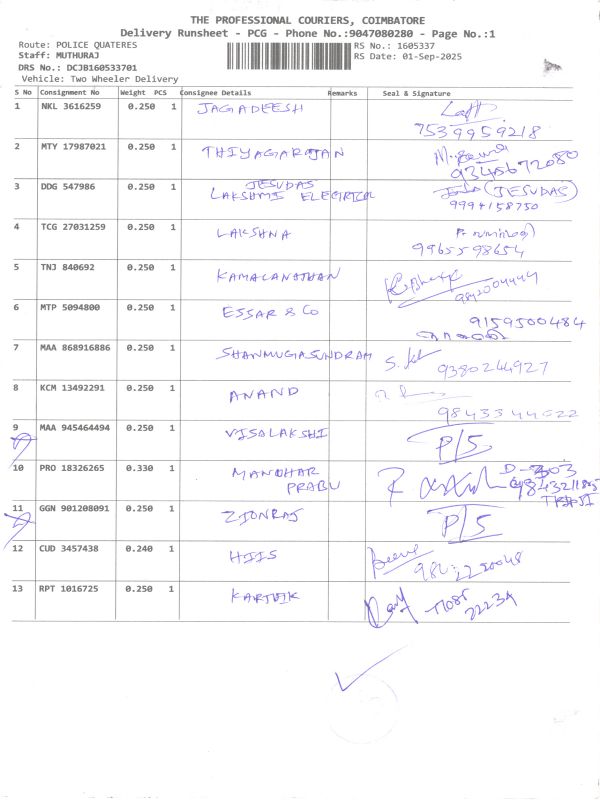 THE PROFESSIONAL COURIERS, COIMBATORE
Delivery Runsheet - PCG - Phone No.:9047080280 - Page No.:1
Route: POLICE QUATERES RS No.: 1605337
Staff: MUTHURAJ RS Date: 01-Sep-2025
DRS No.: DCJB160533701
Vehicle: Two Wheeler Delivery
S No Consignment No Weight PCS Consignee Details Remarks Seal & Signature
1 NKL 3616259 0.250 1 JAGADEESH
7539959218
2 MTY 17987021 0.250 1 THIYAGARAJAN
9345672080
3 DDG 547986 0.250 1 JESUDAS
LAKSHMI ELECTRICAL (JESUDAS)
9994158750
4 TCG 27031259 0.250 1 LAKSHNA
9965598654
5 TNJ 840692 0.250 1 KAMALANATHAN
9842004444
6 MTP 5094800 0.250 1 ESSAR & Co
9159500484
7 MAA 868916886 0.250 1 SHANMUGASUNDRAM
9380244927
8 KCM 13492291 0.250 1 ANAND
9843344022
9 MAA 945464494 0.250 1 VISALAKSHI P/S
10 PRO 18326265 0.330 1 MANOHAR
PRABU
11 GGN 901208091 0.250 1 ZIONRAJ P/S
12 CUD 3457438 0.240 1 HIIS
13 RPT 1016725 0.250 1 KARTHIK